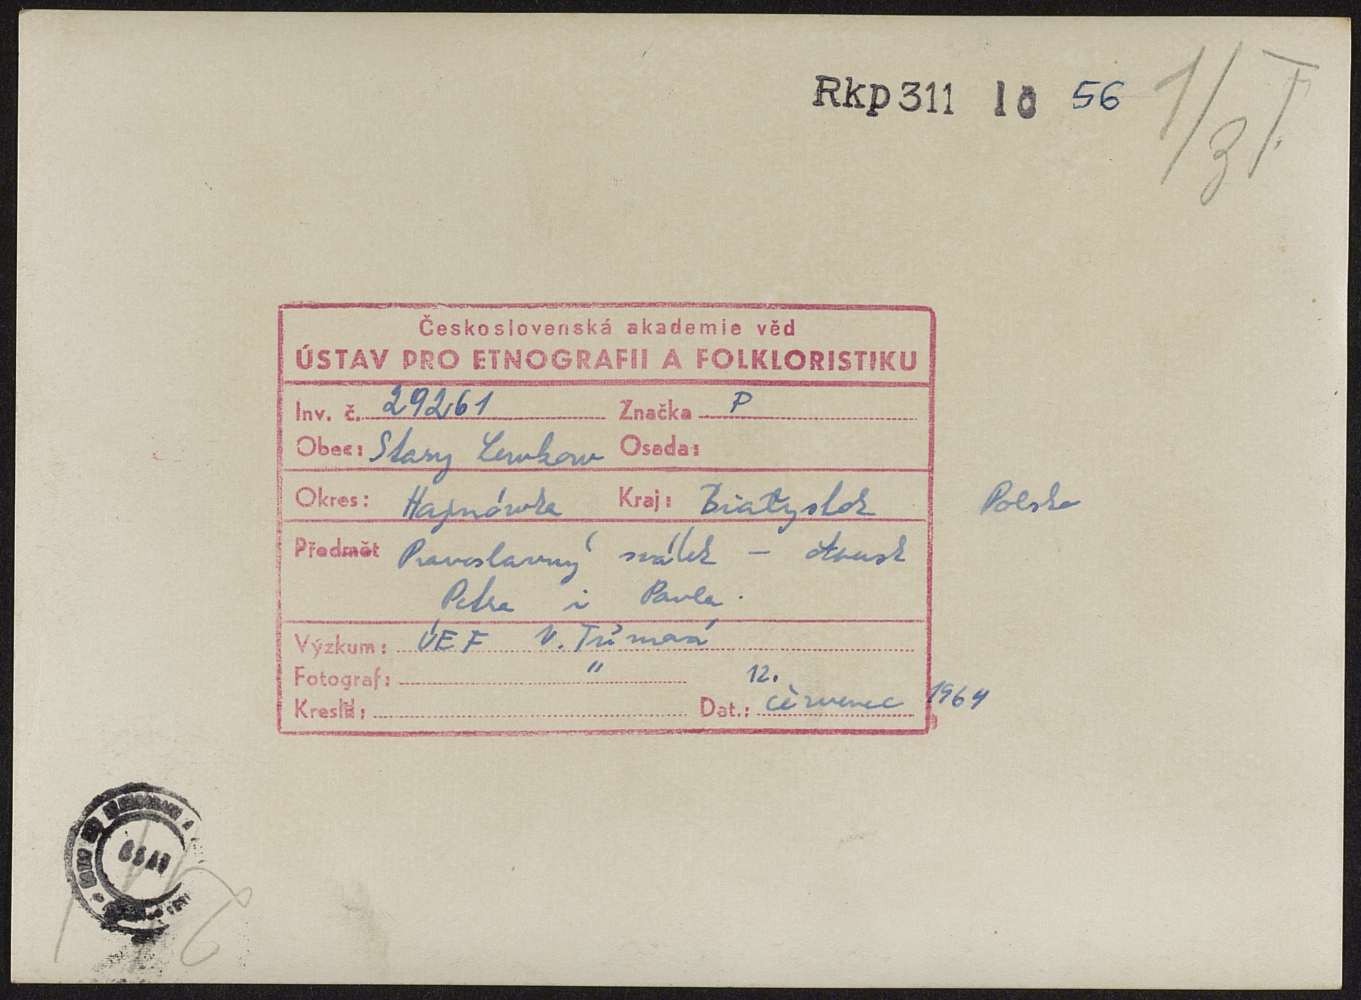 Rkp 311 10 56
1/3 I.
Československá akademie věd
ÚSTAV PRO ETNOGRAFII A FOLKLORISTIKU
Inv. č. 29261 Značka P
Obec: Stary Lewkow Osada:
Okres: Hajnówka Kraj: Białystok Polsko
Předmět Pravoslavný svátek –
Petra i Pavla.
Výzkum: ÚEF V. Tůmová
Fotograf: "
12.
Kreslil: Dat.: červenec 1964